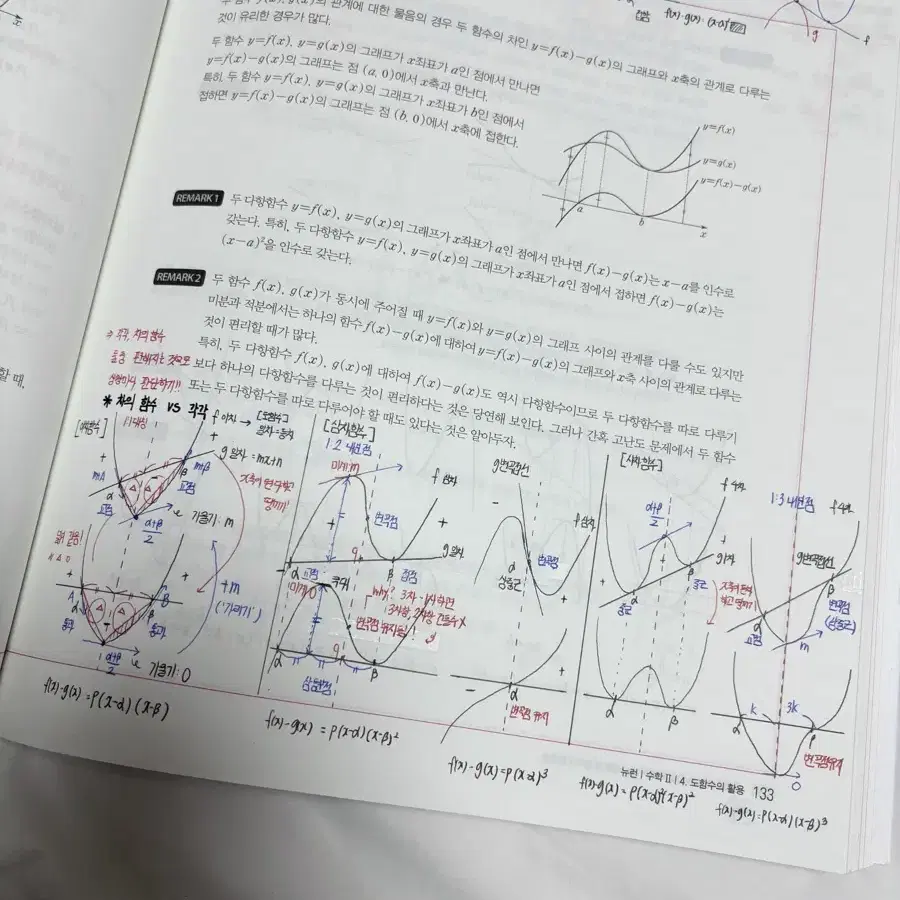 f(x)-g(x) = (x-α)
g
f
의 관계에 대한 물음의 경우 두 함수의 차인 y=f(x)-g(x)의 그래프와 x축의 관계로 다루는
것이 유리한 경우가 많다.
두 함수 y=f(x), y=g(x)의 그래프가 x좌표가 a인 점에서 만나면
y=f(x)-g(x)의 그래프는 점 (a, 0)에서 x축과 만난다.
특히, 두 함수 y=f(x), y=g(x)의 그래프가 x좌표가 b인 점에서
접하면 y=f(x)-g(x)의 그래프는 점 (b, 0)에서 x축에 접한다.
y=f(x)
y=g(x)
y=f(x)-g(x)
a
b
x
REMARK 1 두 다항함수 y=f(x), y=g(x)의 그래프가 x좌표가 a인 점에서 만나면 f(x)-g(x)는 x-a를 인수로
갖는다. 특히, 두 다항함수 y=f(x), y=g(x)의 그래프가 x좌표가 a인 점에서 접하면 f(x)-g(x)는
(x-a)²을 인수로 갖는다.
REMARK 2 두 함수 f(x), g(x)가 동시에 주어질 때 y=f(x)와 y=g(x)의 그래프 사이의 관계를 다룰 수도 있지만
미분과 적분에서는 하나의 함수 f(x)-g(x)에 대하여 y=f(x)-g(x)의 그래프와 x축 사이의 관계로 다루는
것이 편리할 때가 많다.
특히, 두 다항함수 f(x), g(x)에 대하여 f(x)-g(x)도 역시 다항함수이므로 두 다항함수를 따로 다루기
보다 하나의 다항함수를 다루는 것이 편리하다는 것은 당연해 보인다. 그러나 간혹 고난도 문제에서 두 함수
또는 두 다항함수를 따로 다루어야 할 때도 있다는 것은 알아두자.
할 때,
⇒ 각각, 차의 함수
판단하기!!
* 차의 함수 VS 각각
[이차함수]
1:1 대칭
f 이차 → [도함수]
일차=등차
g 일차=mx+n
mα
mβ
α
β
교점
교점
α+β
2
기울기: m
+m
('가려기')
A
B
α+β
2
기울기: 0
f(x)-g(x)=P(x-α)(x-β)
[삼차함수]
1:2 내분점
미계 m
f 삼차
변곡점
g 일차
α
교점
β
접점
미계 0
why? 3차-1차하면
변곡점 유지됨!
α
β
삼등분점
f(x)-g(x) = P(x-α)(x-β)²
g 변곡접선
f 삼차
변곡점
α
삼중근
α
변곡점 유지
f(x)-g(x)=P(x-α)³
[사차함수]
α+β
2
f 4차
g 1차
α
중근
β
중근
α
β
f(x)-g(x)=P(x-α)²(x-β)²
1:3 내분점
f 4차
g 변곡접선
β
변곡점
(삼중근)
α
교점
m
α
k
3k
β
변곡점유지
0
f(x)-g(x)=P(x-α)(x-β)³
뉴런 | 수학 II | 4. 도함수의 활용 133